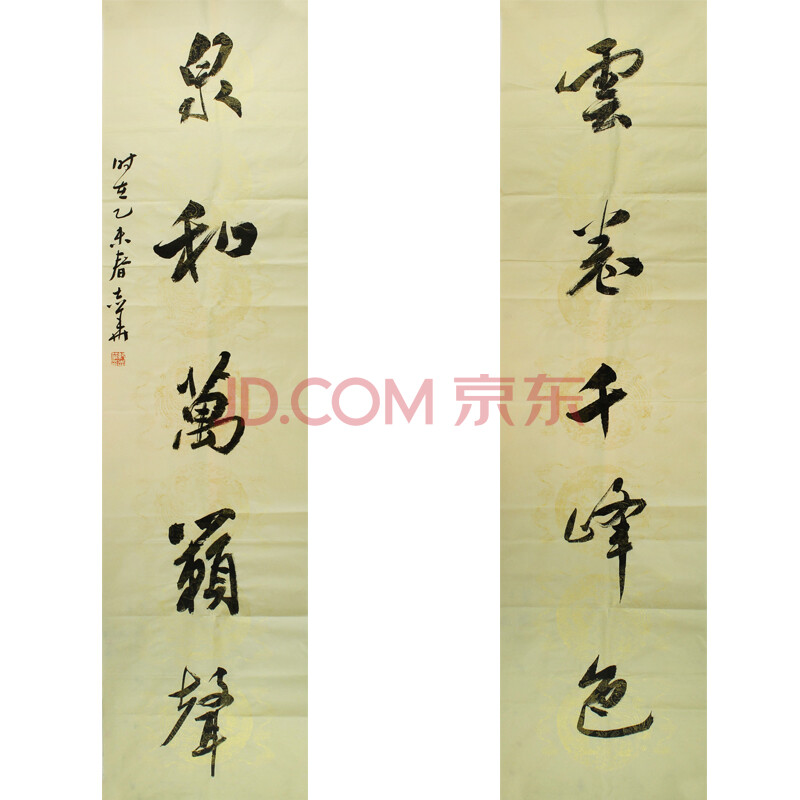 雲卷千峰色
泉和萬籟聲
时在乙未春志華
JD.COM 京东